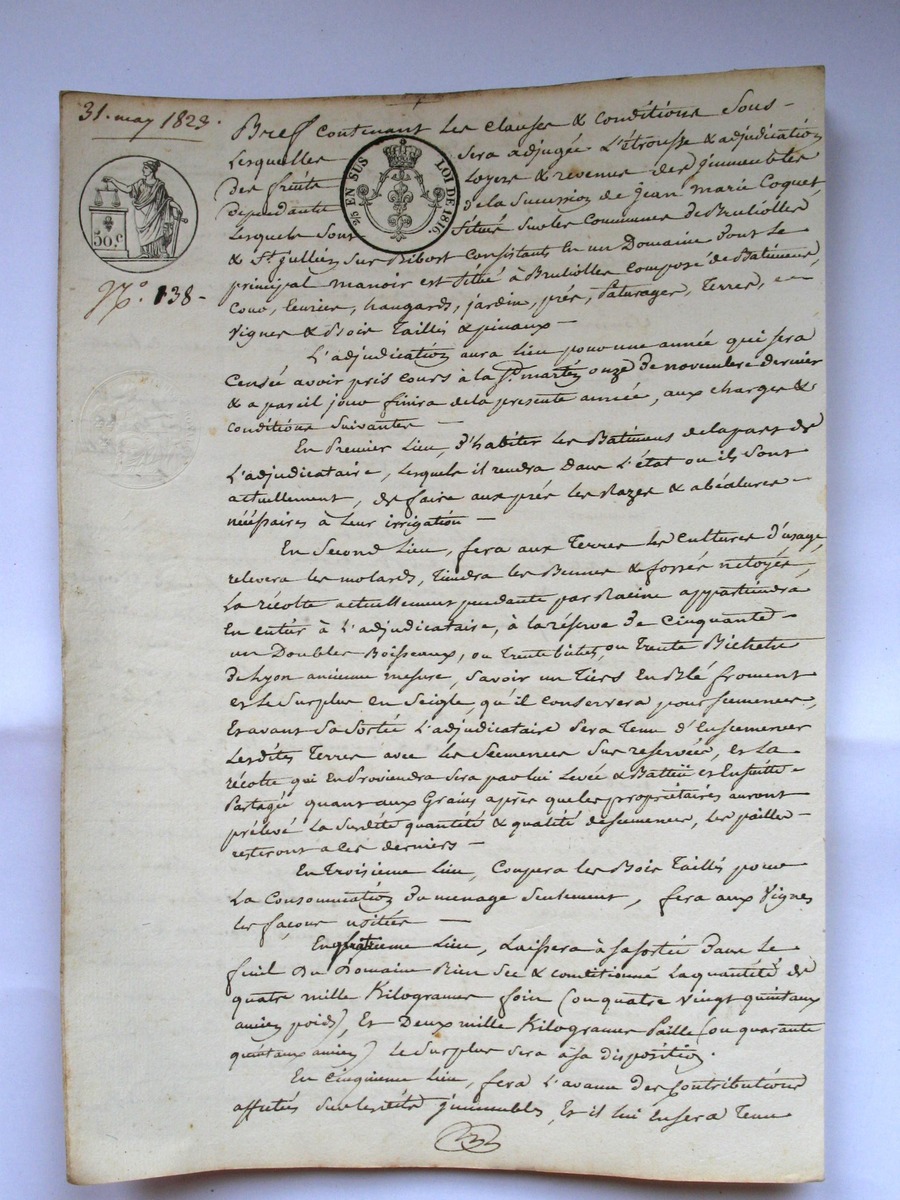 31. may 1823.
Bref contenant les clauses & conditions sous-
lesquelles sera adjugée L'étrousse & adjudication
des fruits Loyers & revenus des jmmeubles
dependants de la Succession de jean marie Coquet,
lesquels sont situés sur les Communes de Brulliolles
& St. jullien sur Bibost Consistants En un Domaine dont Le
principal manoir est situé à Brulliolles composé de Batimens
Cour, Ecuries, hangards, jardin, prés, Paturages, Terres,
Vignes & Bois Taillis & pinaux -
50.c
2/5 EN SUS LOI DE 1816.
N.o 138-
L'adjudication aura Lieu pour une année qui sera
Censée avoir pris cours à la St. martin onze de novembre dernier
& a pareil jour finira de la presente année, aux charges &
conditions Suivantes -
En Premier Lieu, d'habiter Les Batimens de la part de
L'adjudicataire, lesquels il rendra dans L'état ou ils sont
actuellement, de faire aux prés Les Razes & abéalures -
nécéssaires à Leur irrigation -
En Second Lieu, fera aux Terres Les Cultures d'usage,
relevera les molards, Tiendra les Bennes & fossés netoyés,
La récolte actuellement pendante par Racine appartiendra
En entier à L'adjudicataire, à la réserve de Cinquante -
un Doubles Boisseaux, ou Trente bichets, ou Trente Bichets
de Lyon ancienne mesure, Savoir un Tiers En Blé froment
et Le Surplus en Seigle, qu'il Conservera pour semences,
Et avant Sa Sortie L'adjudicataire Sera Tenu d'Ensemencer
Lesdites Terres avec Les Semences Sus reservées, et La
récolte qui En Proviendra Sera par lui Levée & Battüe et Ensuite -
Partagée quant aux Grains après que les propriétaires auront
prélevé La Susdite quantité & qualité de semences, Les pailles -
resteront a Ces derniers -
En Troisieme Lieu, Coupera les Bois Taillis pour
La Consommation du menage Seulement, fera aux Vignes
Les façons usitées -
En quatrieme Lieu, Laissera à sa sortie Dans Le
fenil Du Domaine Bien Sec & conditionné La quantité de
quatre mille Kilogrames foin (ou quatre Vingt quintaux
ancien poids), Et Deux mille Kilogrames Paille (ou quarante
quintaux anciens) Le Surplus sera à sa disposition.
En Cinquieme Lieu, fera L'avance des Contributions
affectées Sur lesdits jmmeubles, Et il lui En sera Tenu